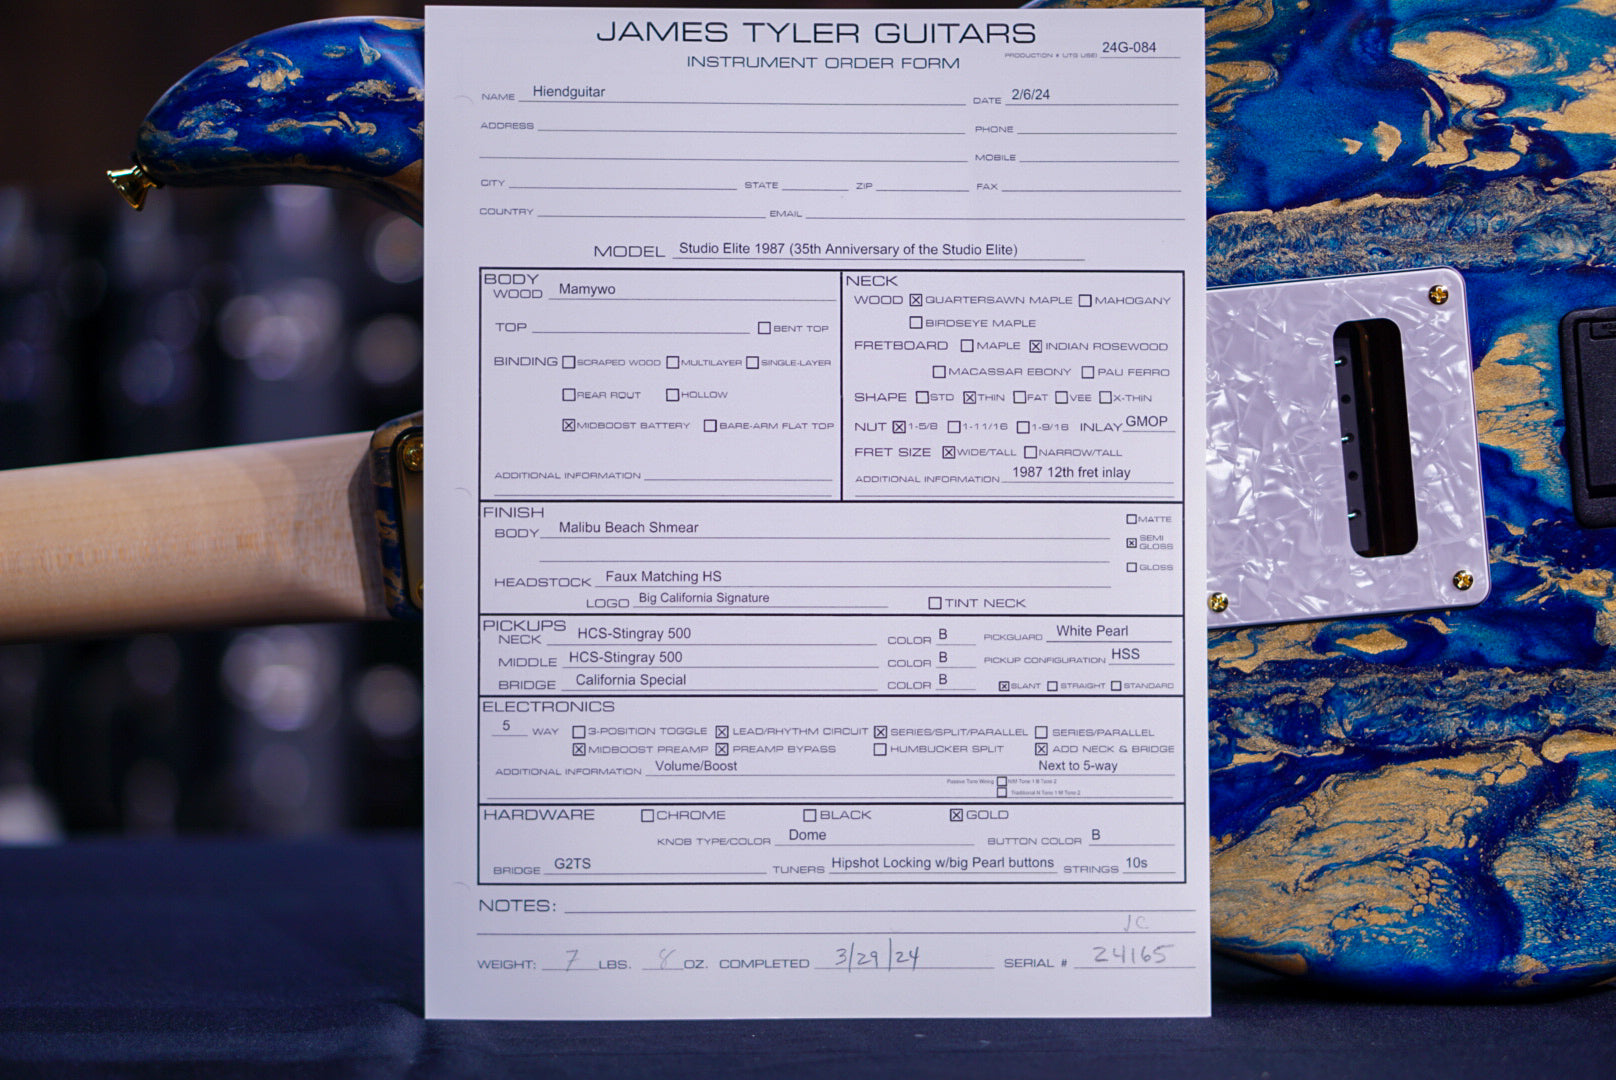 JAMES TYLER GUITARS
INSTRUMENT ORDER FORM
PRODUCTION # (JTG USE) 24G-084
NAME Hiendguitar DATE 2/6/24
ADDRESS PHONE
MOBILE
CITY STATE ZIP FAX
COUNTRY EMAIL
MODEL Studio Elite 1987 (35th Anniversary of the Studio Elite)
BODY
WOOD Mamywo
TOP ☐ BENT TOP
BINDING ☐ SCRAPED WOOD ☐ MULTILAYER ☐ SINGLE-LAYER
☐ REAR ROUT ☐ HOLLOW
☒ MIDBOOST BATTERY ☐ BARE-ARM FLAT TOP
ADDITIONAL INFORMATION
NECK
WOOD ☒ QUARTERSAWN MAPLE ☐ MAHOGANY
☐ BIRDSEYE MAPLE
FRETBOARD ☐ MAPLE ☒ INDIAN ROSEWOOD
☐ MACASSAR EBONY ☐ PAU FERRO
SHAPE ☐ STD ☒ THIN ☐ FAT ☐ VEE ☐ X-THIN
NUT ☒ 1-5/8 ☐ 1-11/16 ☐ 1-9/16 INLAY GMOP
FRET SIZE ☒ WIDE/TALL ☐ NARROW/TALL
ADDITIONAL INFORMATION 1987 12th fret inlay
FINISH
BODY Malibu Beach Shmear
☐ MATTE
☒ SEMI GLOSS
☐ GLOSS
HEADSTOCK Faux Matching HS
LOGO Big California Signature ☐ TINT NECK
PICKUPS
NECK HCS-Stingray 500 COLOR B PICKGUARD White Pearl
MIDDLE HCS-Stingray 500 COLOR B PICKUP CONFIGURATION HSS
BRIDGE California Special COLOR B ☒ SLANT ☐ STRAIGHT ☐ STANDARD
ELECTRONICS
5 WAY ☐ 3-POSITION TOGGLE ☒ LEAD/RHYTHM CIRCUIT ☒ SERIES/SPLIT/PARALLEL ☐ SERIES/PARALLEL
☒ MIDBOOST PREAMP ☒ PREAMP BYPASS ☐ HUMBUCKER SPLIT ☒ ADD NECK & BRIDGE
ADDITIONAL INFORMATION Volume/Boost Next to 5-way
Passive Tone Wiring ☐ N/M Tone 1 B Tone 2
☐ Traditional N Tone 1 M Tone 2
HARDWARE ☐ CHROME ☐ BLACK ☒ GOLD
KNOB TYPE/COLOR Dome BUTTON COLOR B
BRIDGE G2TS TUNERS Hipshot Locking w/big Pearl buttons STRINGS 10s
NOTES:
JC
WEIGHT: 7 LBS. 8 OZ. COMPLETED 3/29/24 SERIAL # 24165